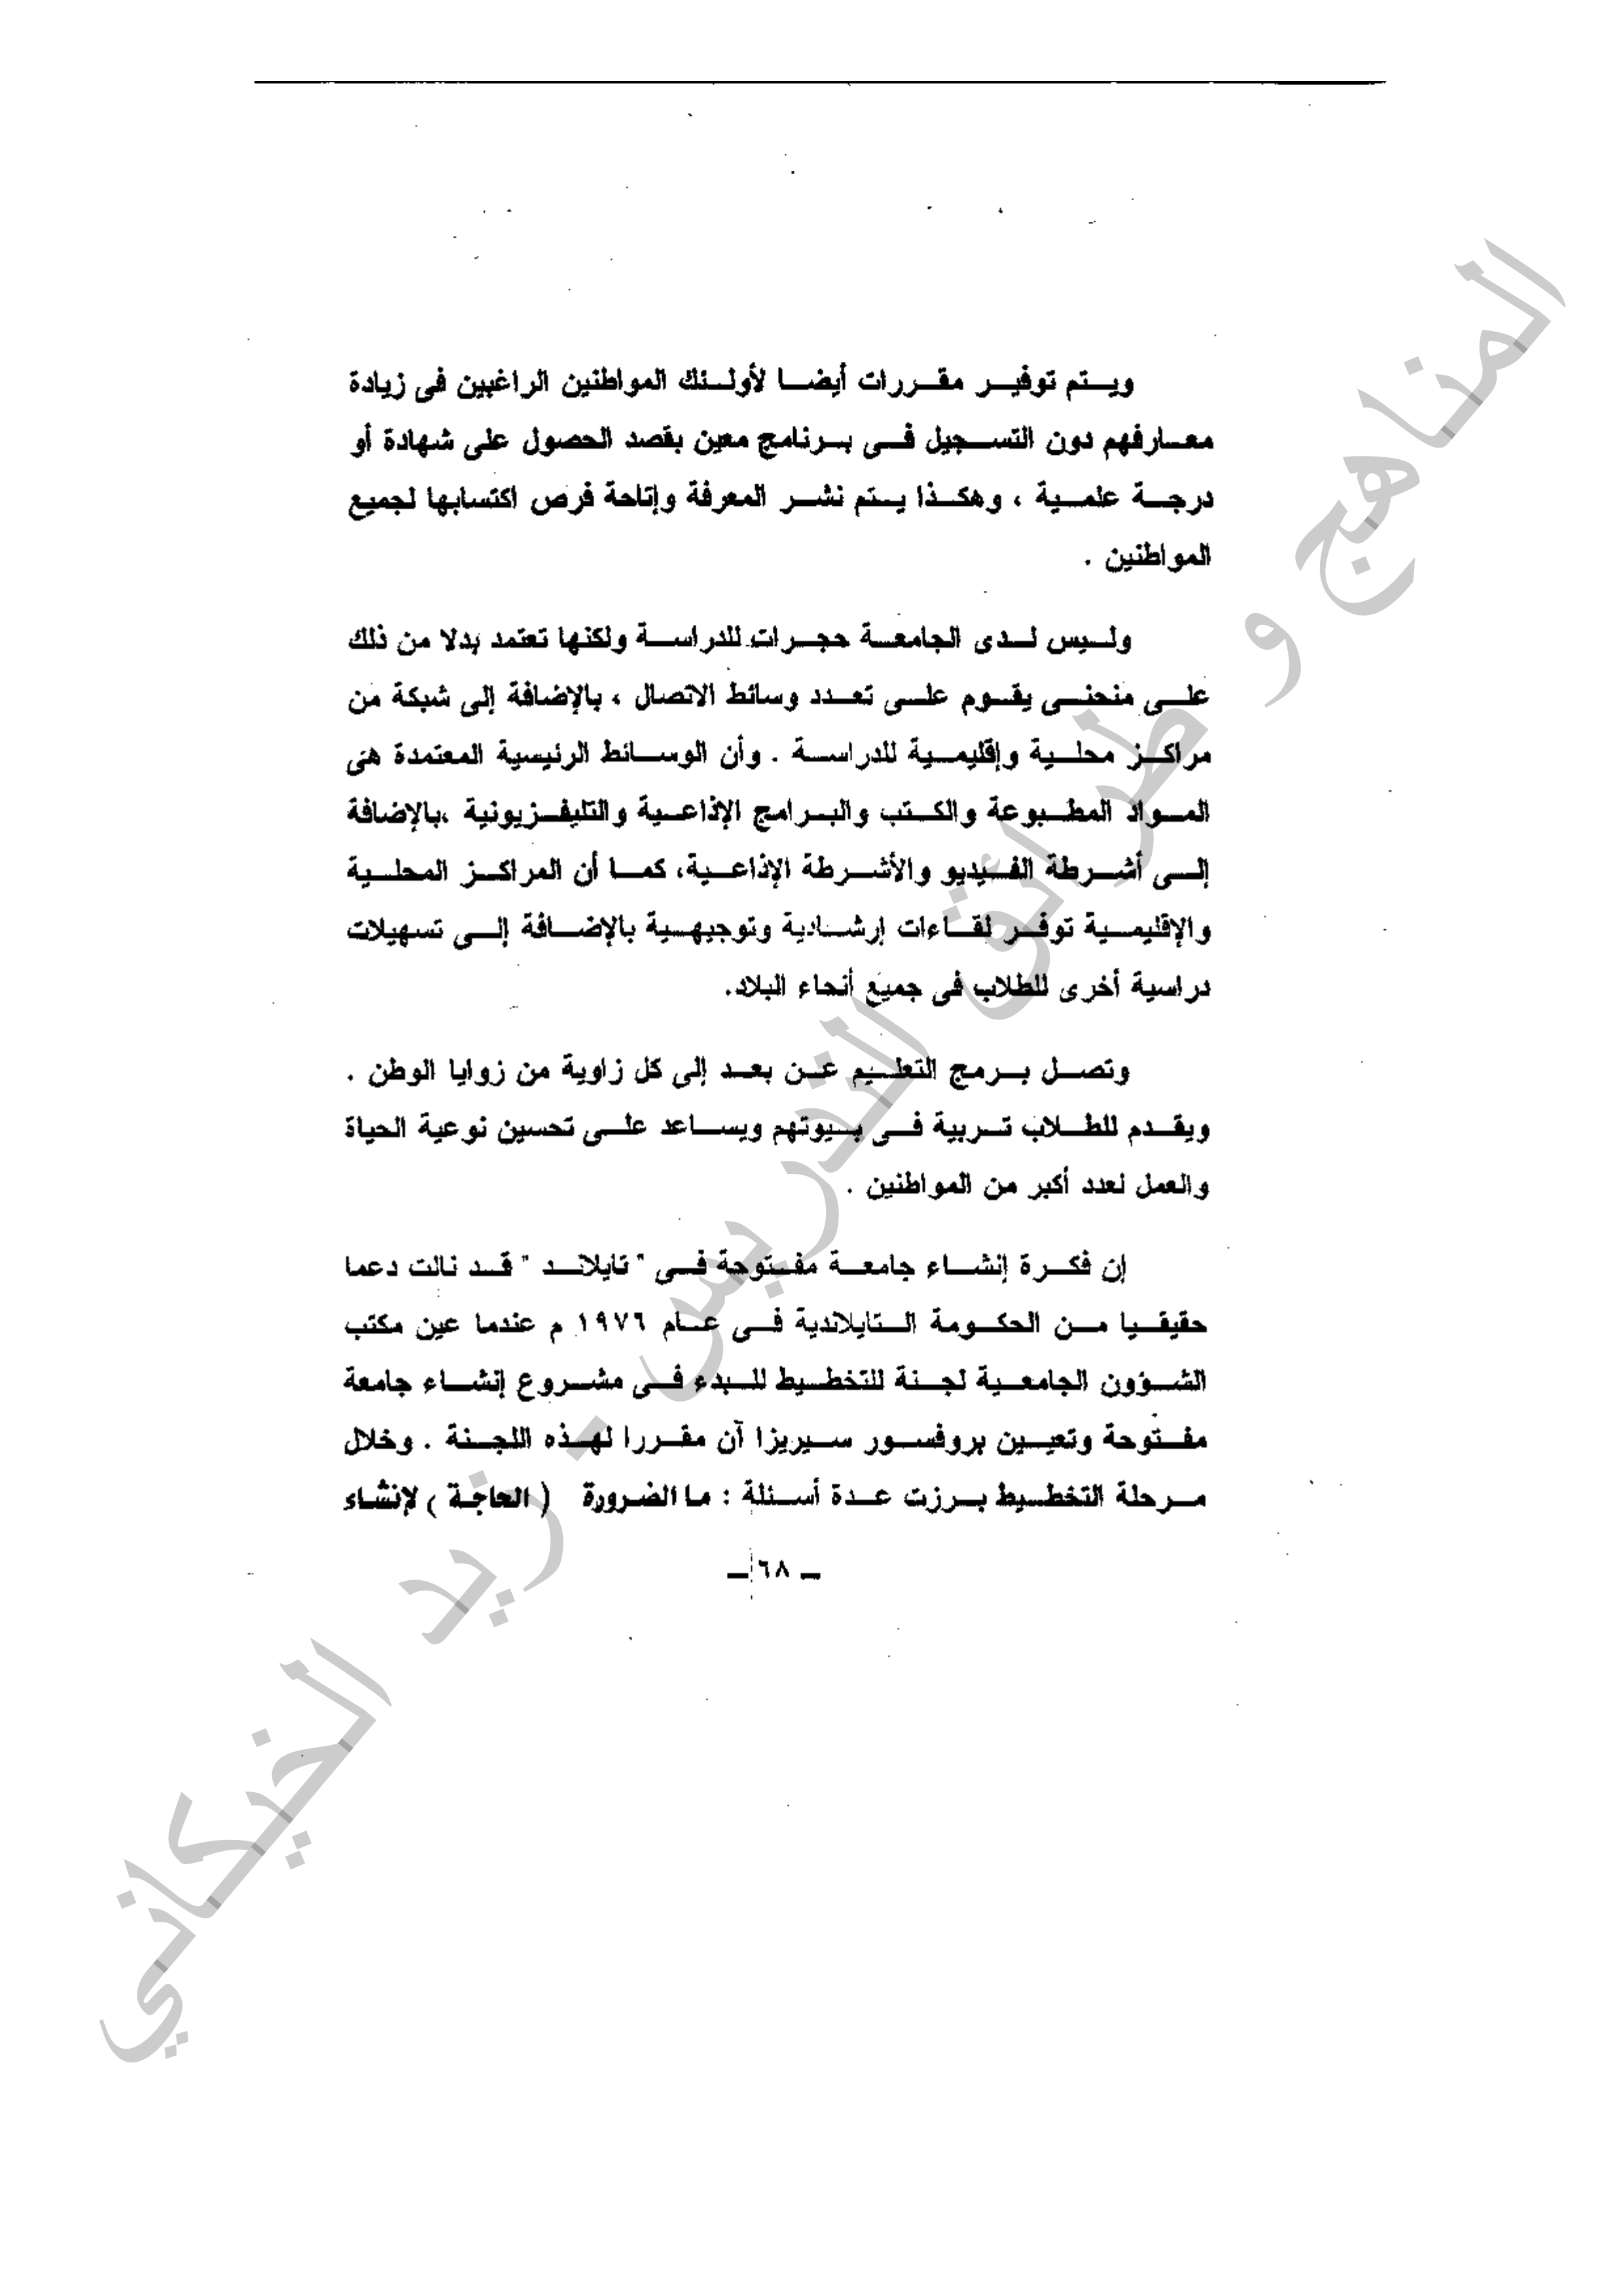 ويتم توفير مقررات أيضا لأولئك المواطنين الراغبين فى زيادة
معارفهم دون التسجيل فى برنامج معين بقصد الحصول على شهادة أو
درجة علمية ، وهكذا يتم نشر المعرفة وإتاحة فرص اكتسابها لجميع
المواطنين .
وليس لدى الجامعة حجرات للدراسة ولكنها تعتمد بدلا من ذلك
على منحنى يقوم على تعدد وسائط الاتصال ، بالإضافة إلى شبكة من
مراكز محلية وإقليمية للدراسة . وأن الوسائط الرئيسية المعتمدة هى
المواد المطبوعة والكتب والبرامج الإذاعية والتليفزيونية ،بالإضافة
إلى أشرطة الفيديو والأشرطة الإذاعية، كما أن المراكز المحلية
والإقليمية توفر لقاءات إرشادية وتوجيهية بالإضافة إلى تسهيلات
دراسية أخرى للطلاب فى جميع أنحاء البلاد.
وتصل برمج التعليم عن بعد إلى كل زاوية من زوايا الوطن .
ويقدم للطلاب تربية فى بيوتهم ويساعد على تحسين نوعية الحياة
والعمل لعدد أكبر من المواطنين .
إن فكرة إنشاء جامعة مفتوحة فى " تايلاند " قد نالت دعما
حقيقيا من الحكومة التايلاندية فى عام ١٩٧٦ م عندما عين مكتب
الشؤون الجامعية لجنة للتخطيط للبدء فى مشروع إنشاء جامعة
مفتوحة وتعيين بروفسور سيريزا آن مقررا لهذه اللجنة . وخلال
مرحلة التخطيط برزت عدة أسئلة : ما الضرورة ( الحاجة ) لإنشاء
ـ ٦٨ ـ
المناهج و طرائق التدريس - زيد الخيكاني